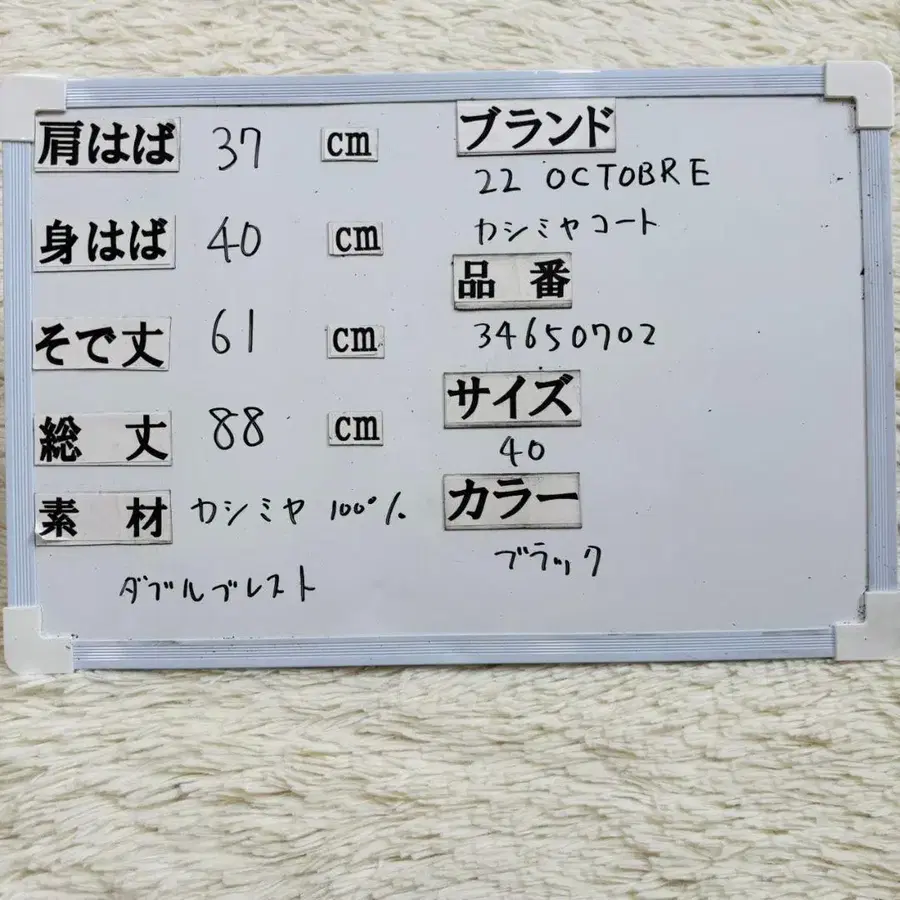 肩はば 37 cm
身はば 40 cm
そで丈 61 cm
総丈 88 cm
素材 カシミヤ 100%
ダブルブレスト
ブランド
22 OCTOBRE
カシミヤコート
品番
34650702
サイズ
40
カラー
ブラック